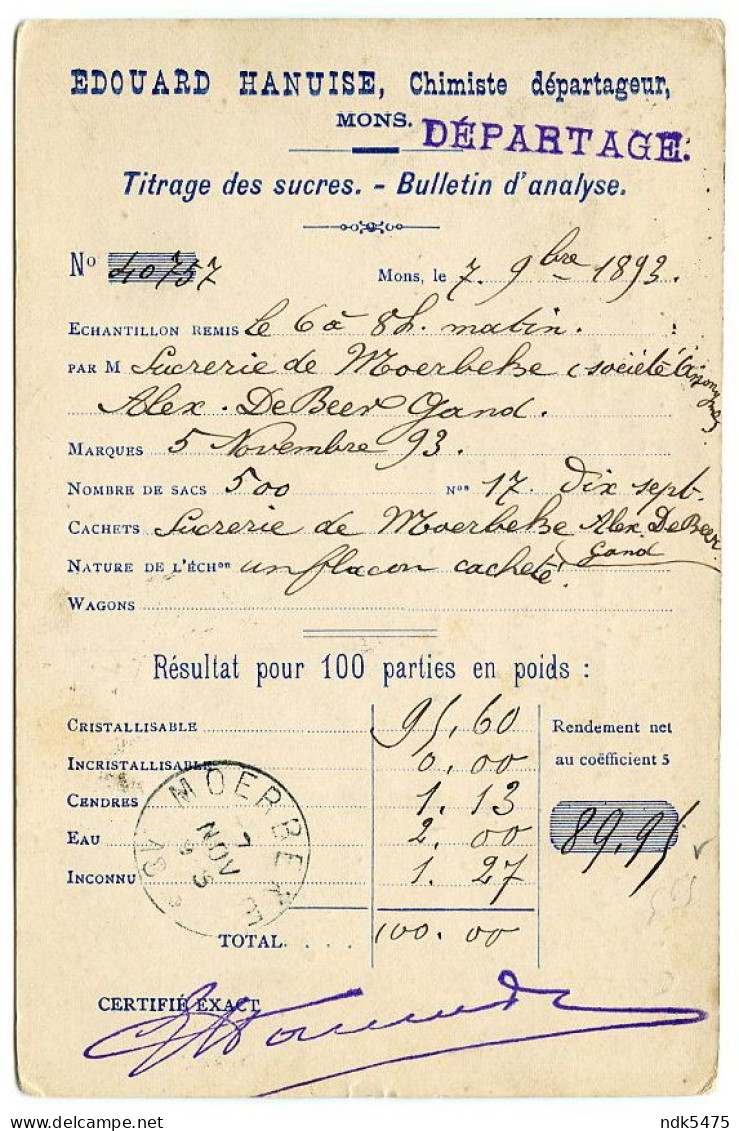 EDOUARD HANUISE, Chimiste départageur,
MONS.
DÉPARTAGE.
Titrage des sucres. - Bulletin d'analyse.
No 40757 Mons, le 7. 9bre 1893.
ECHANTILLON REMIS Le 6 à 8h. matin.
PAR M Sucrerie de Moerbeke (société Anonyme)
Alex. De Beer Gand.
MARQUES 5 Novembre 93.
NOMBRE DE SACS 500 Nos 17. Dix sept.
CACHETS Sucrerie de Moerbeke Alex. De Beer.
Gand
NATURE DE L'ÉCHon un flacon cacheté.
WAGONS
Résultat pour 100 parties en poids :
CRISTALLISABLE 95,60 Rendement net
INCRISTALLISABLE 0,00 au coëfficient 5
CENDRES 1.13
EAU 2.00 89,95
INCONNU 1.27
TOTAL. . . . 100.00
MOERBEKE
7
NOV
18 93
CERTIFIÉ EXACT
ndk5475